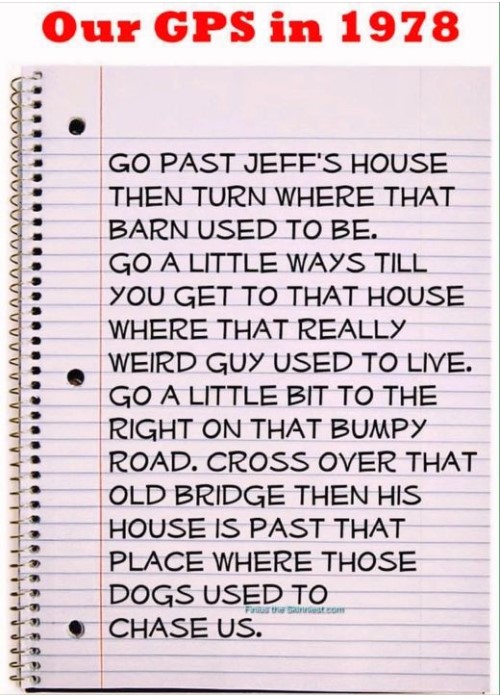 Our GPS in 1978
GO PAST JEFF'S HOUSE
THEN TURN WHERE THAT
BARN USED TO BE.
GO A LITTLE WAYS TILL
YOU GET TO THAT HOUSE
WHERE THAT REALLY
WEIRD GUY USED TO LIVE.
GO A LITTLE BIT TO THE
RIGHT ON THAT BUMPY
ROAD. CROSS OVER THAT
OLD BRIDGE THEN HIS
HOUSE IS PAST THAT
PLACE WHERE THOSE
DOGS USED TO
Finius the Skinniest.com
CHASE US.